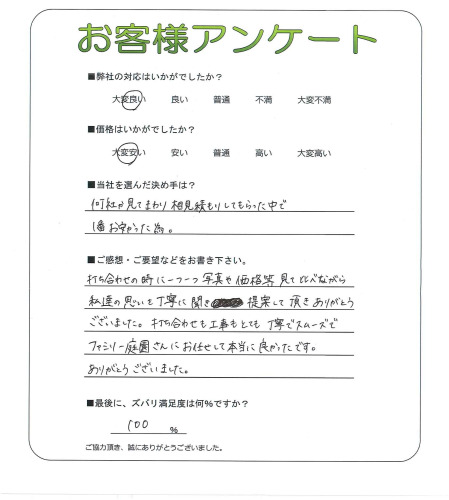 お客様アンケート
■弊社の対応はいかがでしたか？
大変良い 良い 普通 不満 大変不満
■価格はいかがでしたか？
大変安い 安い 普通 高い 大変高い
■当社を選んだ決め手は？
何社か見てまわり相見積もりしてもらった中で
1番お安かった為。
■ご感想・ご要望などをお書き下さい。
打ち合わせの時に一つ一つ写真や価格等見て比べながら
私達の思いを丁寧に聞き 提案して頂きありがとう
ございました。打ち合わせも工事もとても丁寧でスムーズで
ファミリー庭園さんにお任せして本当に良かったです。
ありがとうございました。
■最後に、ズバリ満足度は何％ですか？
100 ％
ご協力頂き、誠にありがとうございました。